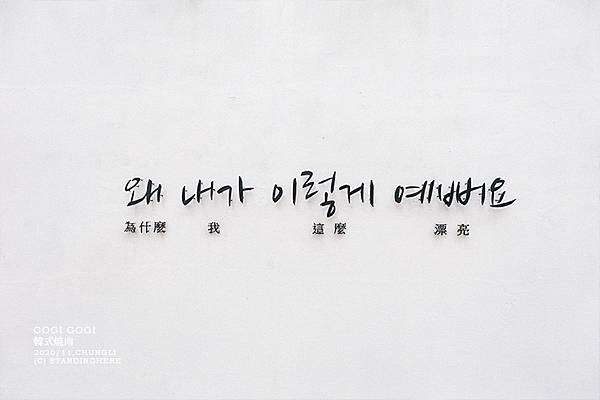 왜 내가 이렇게 예뻐요
為什麼 我 這麼 漂亮
GOGI GOGI
韓式燒肉
2020/11,CHUNGLI
(C) STANDINGHERE